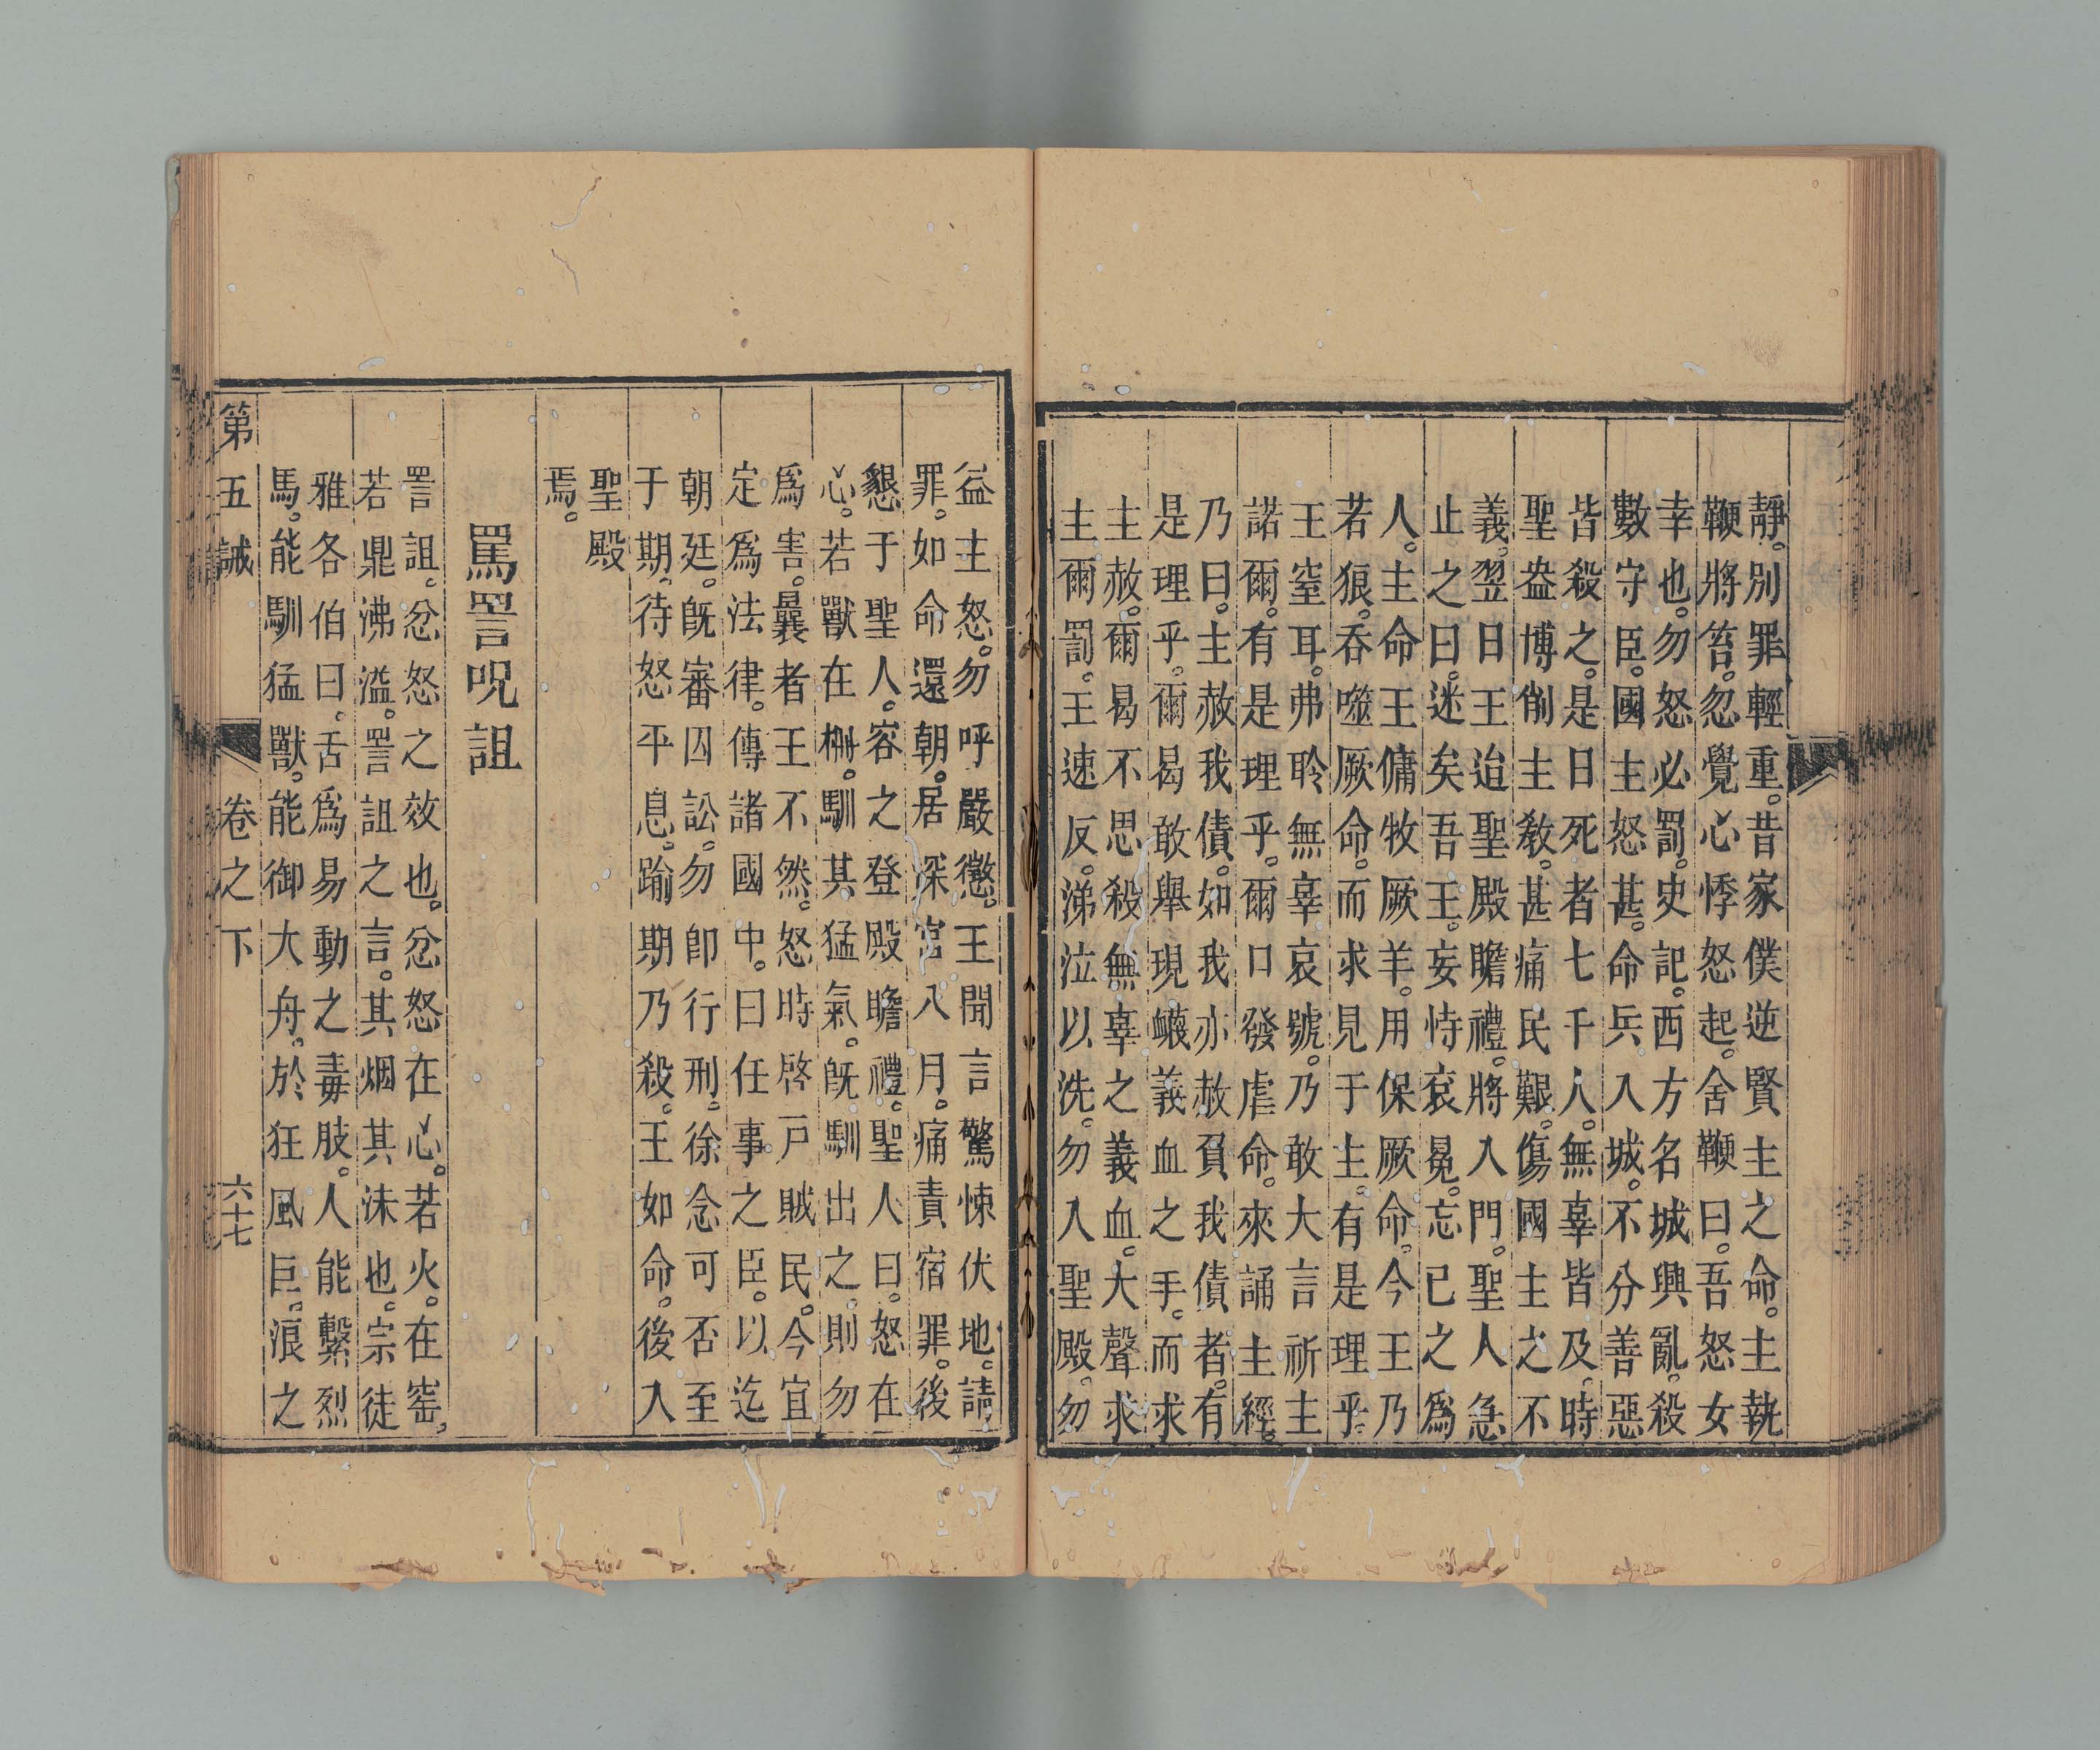 靜。別罪輕重。昔家僕逆賢主之命。主執
鞭將笞。忽覺心悸怒起。舍鞭曰。吾怒女
幸也。勿怒必罰。史記。西方名城興亂。殺
數守臣。國主怒甚。命兵入城。不分善惡
皆殺之。是日死者七千人。無辜皆及。時
聖盎博削主敎。甚痛民艱。傷國主之不
義。翌日王迨聖殿瞻禮。將入門。聖人急
止之曰。迷矣吾王。妄恃袞冕。忘已之爲
人。主命王傭牧厥羊。用保厥命。今王乃
若狼。呑噬厥命。而求見于主。有是理乎
王窒耳。弗聆無辜哀號。乃敢大言祈主
諾爾。有是理乎。爾口發虐命。來誦主經。
乃曰。主赦我債。如我亦赦負我債者。有
是理乎。爾曷敢舉現衊義血之手。而求
主赦。爾曷不思殺無辜之義血。大聲求
主爾罰。王速反。涕泣以洗。勿入聖殿。勿
益主怒。勿呼嚴懲。王聞言驚悚伏地。請
罪。如命還朝。居深宮八月。痛責宿罪。後
懇于聖人。容之登殿瞻禮。聖人曰。怒在
心。若獸在柵。馴其猛氣。旣馴出之。則勿
爲害。曩者王不然。怒時啓戸賊民。今宜
定爲法律。傳諸國中。曰任事之臣。以迄
朝廷。旣審囚訟。勿卽行刑。徐念可否至
于期。待怒平息。踰期乃殺。王如命。後入
聖殿
焉。
罵詈呪詛
詈詛。忿怒之效也。忿怒在心。若火。在窑。
若鼎沸溢。詈詛之言。其烟其沫也。宗徒
雅各伯曰。舌爲易動之毒肢。人能繫烈
馬。能馴猛獸。能御大舟。於狂風巨。浪之
第五誡 卷之下 六十七